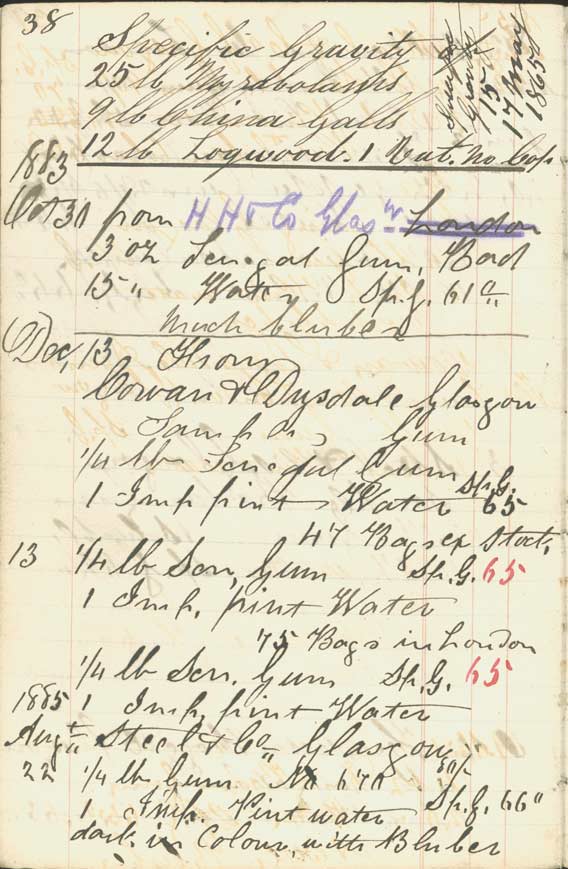 38
Specific Gravity of
25 lb Myrabolams
9 lb China Galls
12 lb Logwood. 1 Nut. No Cop
15
17 May
1865
1883
Oct 30 from H H & Co Glasw London
3 oz Senegal Gum, Bad
15 " Water Sp.G. 61
Much Bluber
Dec, 13 From
Cowan & Drysdale Glasgow
Samples Gum
1/4 lb Senegal Gum
1 Imp pint Water Sp.G. 65
47 Bags ex Stock,
13 1/4 lb Sen, Gum Sp.G. 65
1 Imp, pint Water
75 Bags in London
1/4 lb Sen. Gum Sp.G. 65
1885 1 Imp, pint Water
Augt Steel & Co Glasgow
22 1/4 lb Gum No 670
1 Imp. Pint water Sp.G. 66
dark in Colour, with Bluber